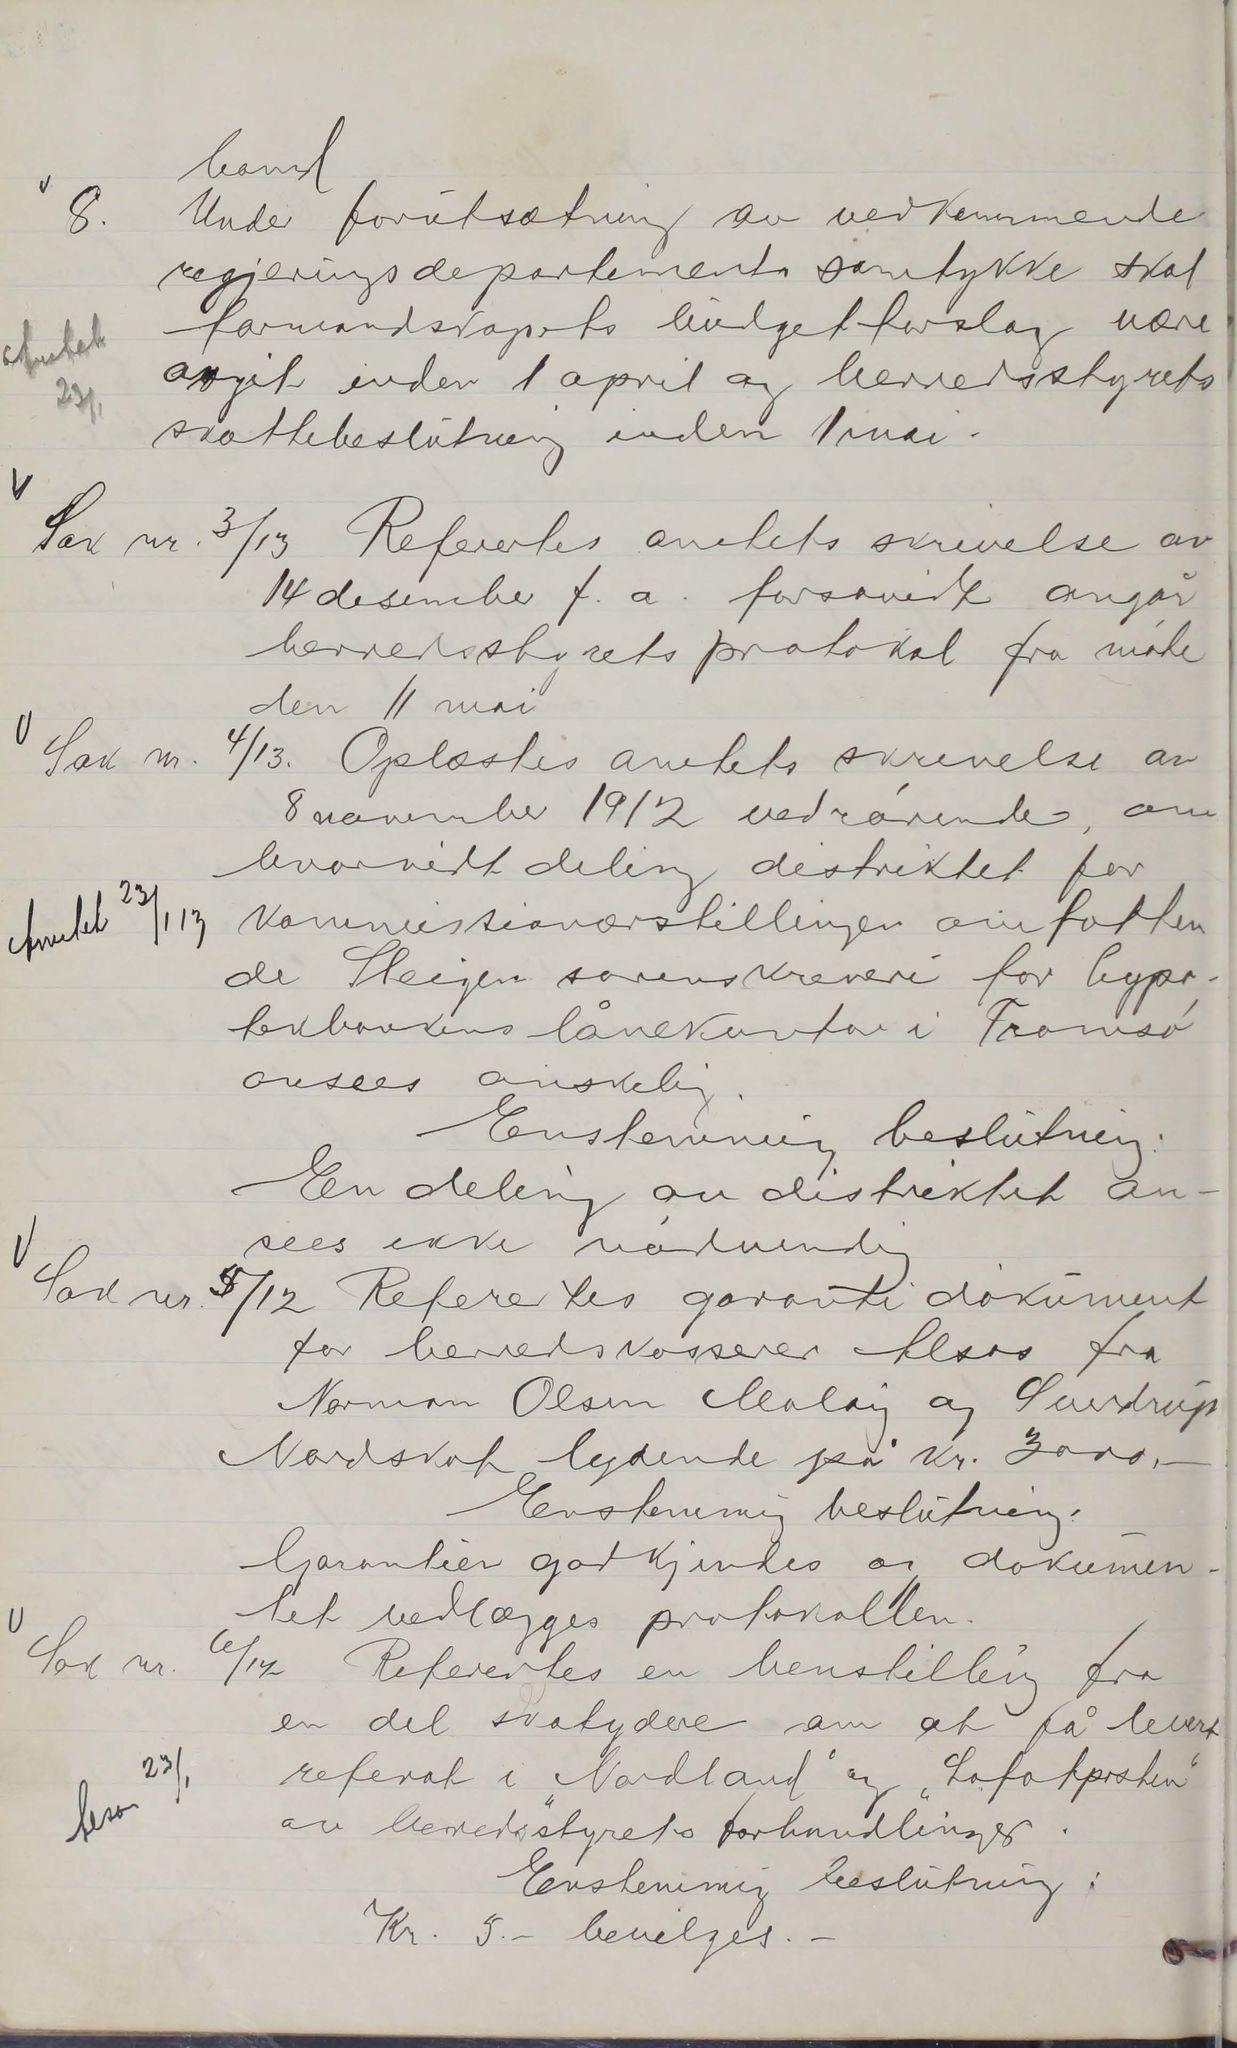 band
8. Under forutsætning av vedkommende
regjeringsdepartements samtykke skal
formandskapets budgetforslag være
Amtet
23/1
avgit inden 1 april og herredsstyrets
skattebeslutning inden 1 mai.
Sak nr. 3/13 Refertes amtets skrivelse av
14 desember f. a. forsavidt angår
herredsstyrets protokol fra møte
den 11 mai
Sak nr. 4/13. Oplæstes amtets skrivelse av
8 november 1912 vedrørende, om
hvorvidt deling distriktet for
Amtet 23/1 13
kommissionærstillingen omfatten
de Steigen sorenskriveri for hypo-
tekbankens lånekontor i Tromsø
ansees ønskelig.
Enstemmig beslutning:
En deling av distriktet an-
sees ikke nødvendig
Sak nr. 5/12 Refertes garanti dokument
for herredskasserer Alsos fra
Norman Olsen Maløy og Sverdrup
Nordskot lydende på kr. 3000,-
Enstemmig beslutning:
Garantien godkjendes og dokumen-
tet vedlægges protokollen.
Sak nr. 6/12 Refertes en henstilling fra
en del skatydere om at få levert
23/1
referat i "Nordland" og "Lofotposten"
av herredsstyrets forhandlinger.
Enstemmig beslutning:
Kr. 5.- bevilges.-